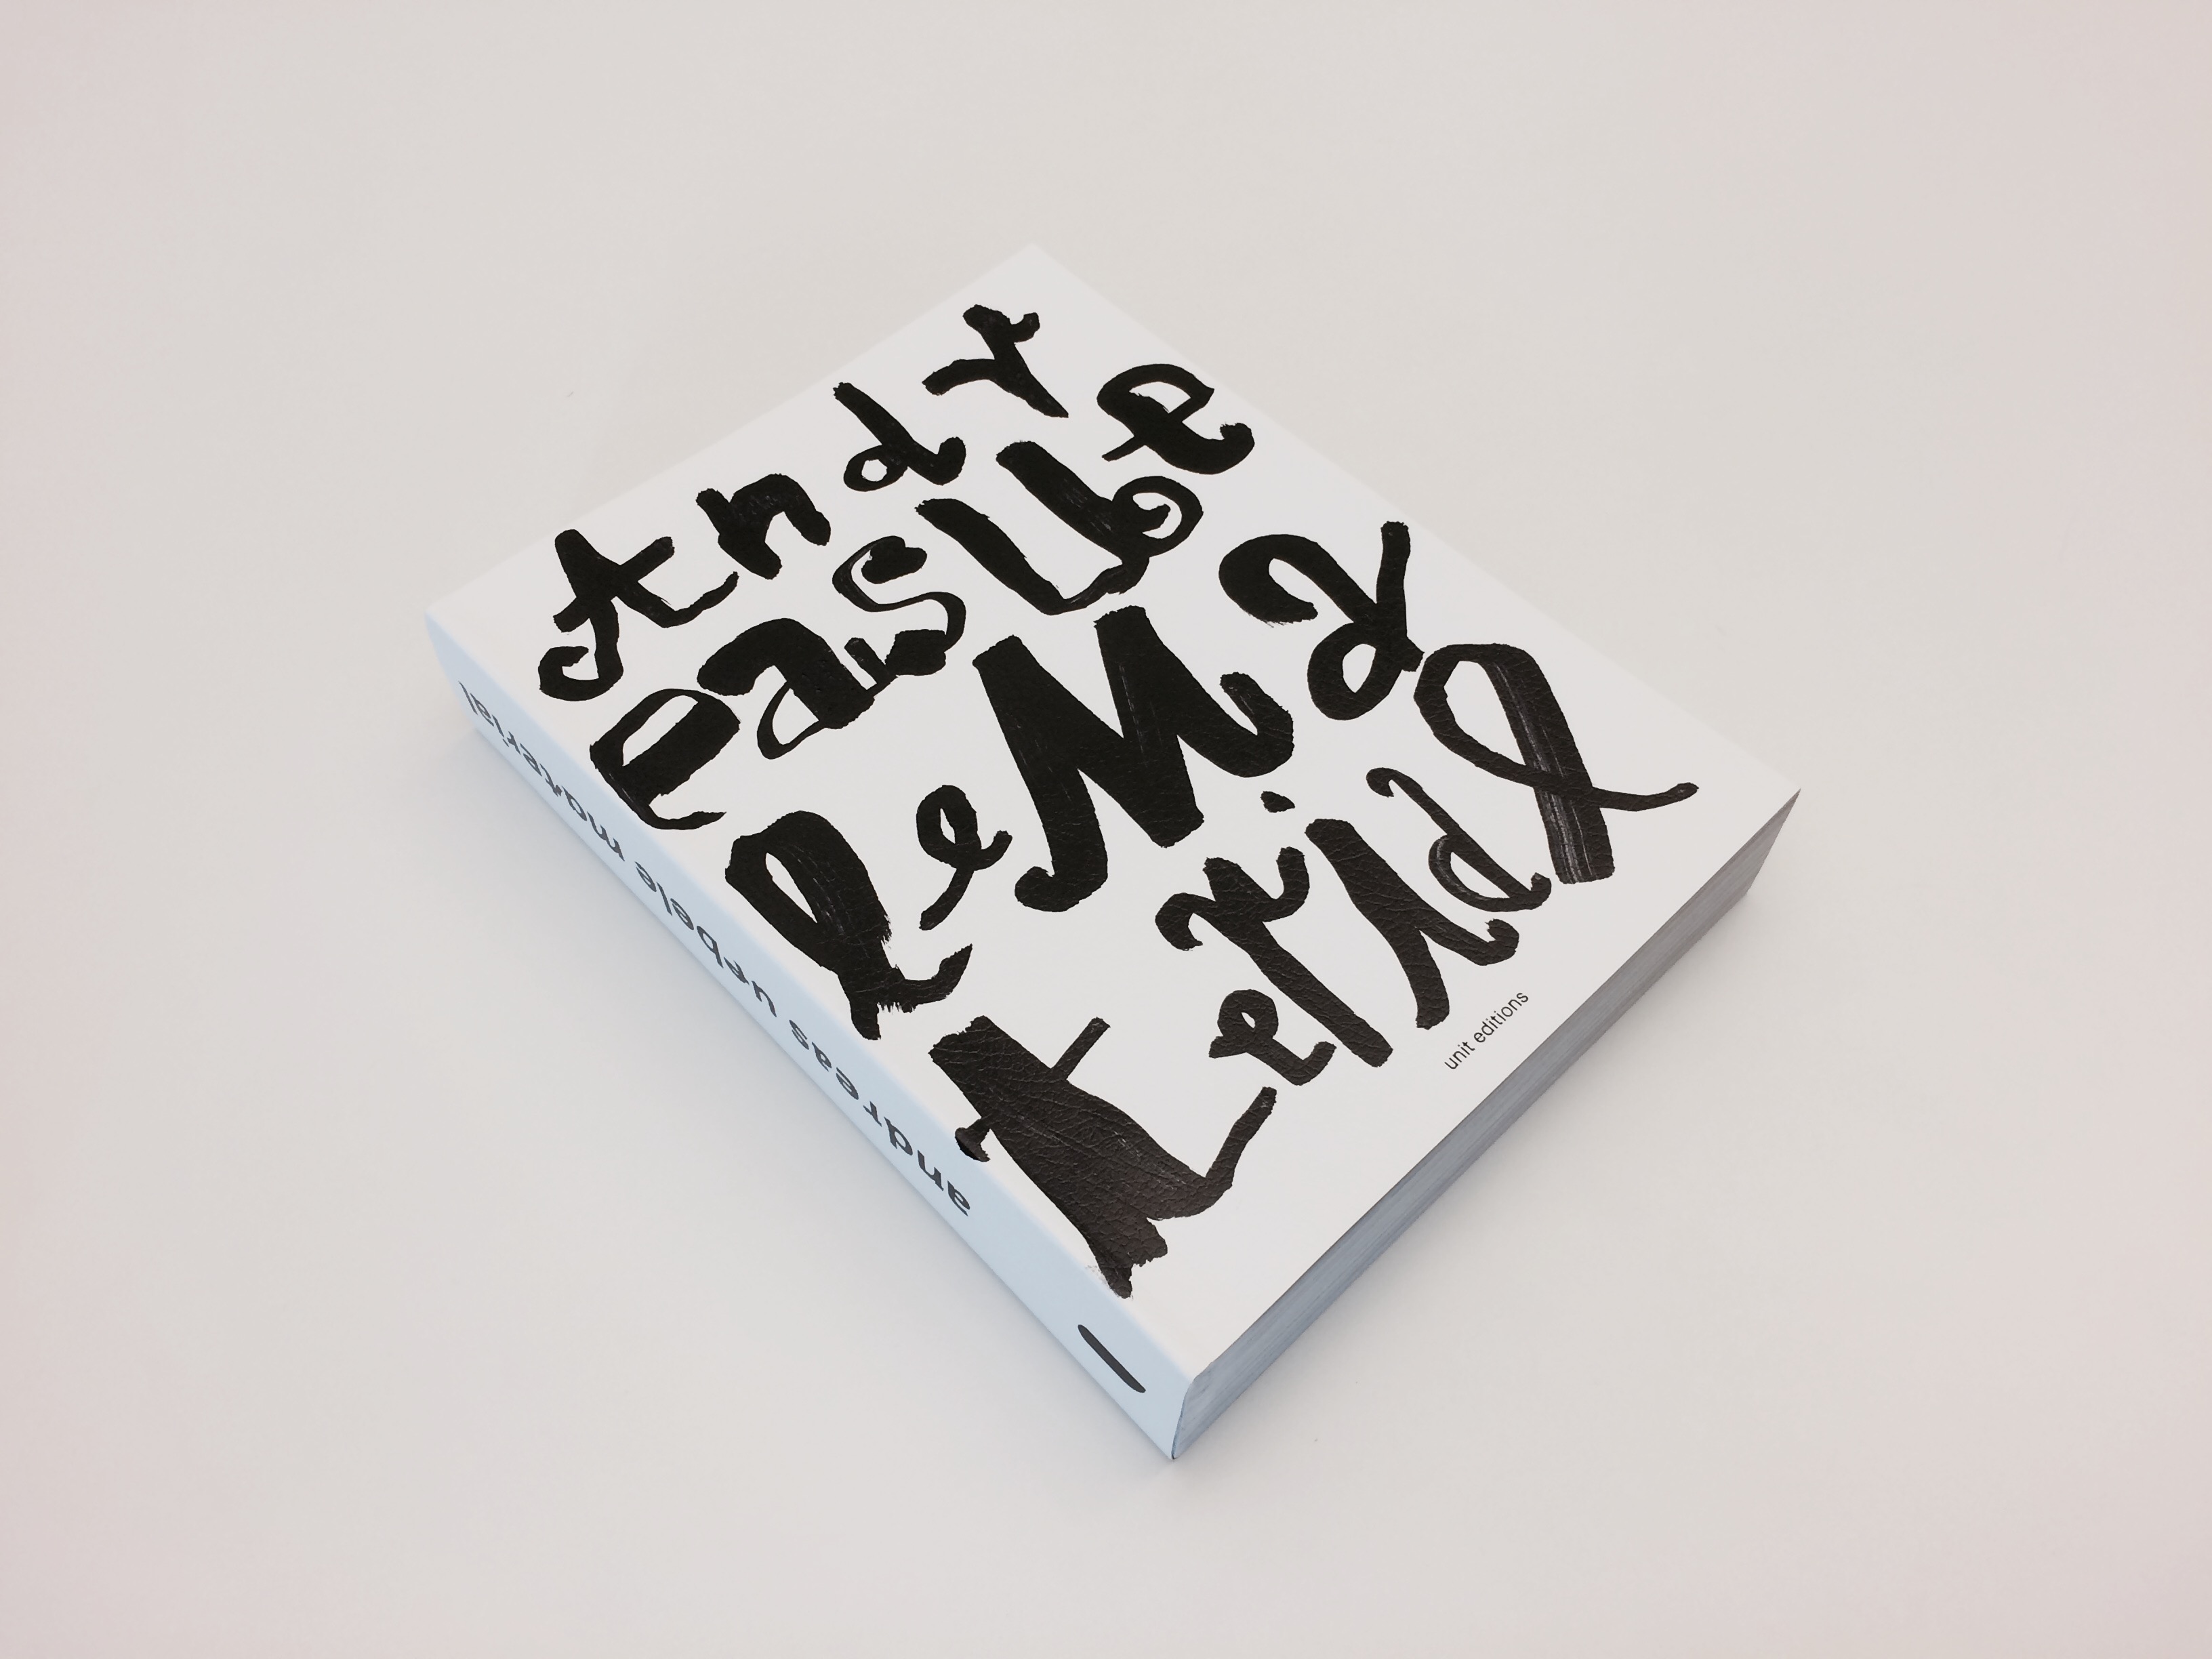 Andr
easUebe
leMa
terial
unit editions
andreas uebele material